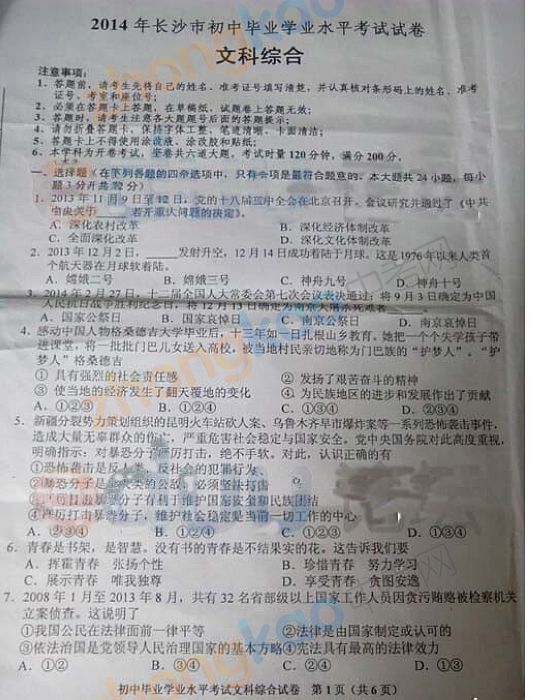 2014年长沙市初中毕业学业水平考试试卷
文科综合
注意事项：
1．答题前，请考生先将自己的姓名、准考证号填写清楚，并认真核对条形码上的姓名、准考
证号、考室和座位号；
2．必须在答题卡上答题，在草稿纸、试题卷上答题无效；
3．答题时，请考生注意各大题题号后面的答题提示；
4．请勿折叠答题卡，保持字体工整、笔迹清晰、卡面清洁；
5．答题卡上不得使用涂改液、涂改胶和贴纸；
6．本学科为开卷考试，全卷共六道大题，考试时量120分钟，满分200分。
一、选择题（在下列各题的四个选项中，只有一项是最符合题意的。本大题共24小题，每小
题3分共72分）
1．2013年11月9日至12日，党的十八届三中全会在北京召开。会议研究并通过了《中共
中央关于____若干重大问题的决定》。
A．深化农村改革 B．深化经济体制改革
C．全面深化改革 D．深化文化体制改革
2．2013年12月2日，____发射升空，12月14日成功着陆于月球。这是1976年以来人类首
个航天器在月球软着陆。
A．嫦娥二号 B．嫦娥三号 C．神舟九号 D．神舟十号
3．2014年2月27日，十二届全国人大常委会第七次会议表决通过，将9月3日确定为中国
人民抗日战争胜利纪念日，将12月13日确定为南京大屠杀死难者
A．国家公祭日 B．国家哀悼日 C．南京公祭日 D．南京哀悼日
4．感动中国人物格桑德吉大学毕业后，十三年如一日扎根山乡教育。她把一个个失学孩子带
进课堂，将一批批门巴儿女送入高校，被当地村民亲切地称为门巴族的“护梦人”。“护
梦人”格桑德吉
①具有强烈的社会责任感 ②发扬了艰苦奋斗的精神
③使当地的经济发生了翻天覆地的变化 ④为民族地区的进步和发展作出了贡献
A．①②③ B．①②④ C．②③④ D．①③④
5．新疆分裂势力策划组织的昆明火车站砍人案、乌鲁木齐早市爆炸案等一系列恐怖袭击事件，
造成大量无辜群众的伤亡，严重危害社会稳定与国家安全。党中央国务院对此高度重视，
明确指示：对暴恐分子严厉打击，绝不手软。对此，认识正确的有
①恐怖袭击是反人类、反社会的犯罪行为
②暴恐分子是全人类的公敌，必须坚决打击
③严厉打击暴恐分子有利于维护国家安全和民族团结
④严厉打击暴恐分子，维护社会稳定是当前一切工作的中心
A．②③④ B．①②④ C．①②③ D．①③④
6．青春是书架，是智慧。没有书的青春是不结果实的花。这告诉我们要
A．挥霍青春 张扬个性 B．珍惜青春 努力学习
C．展示青春 唯我独尊 D．享受青春 贪图安逸
7．2008年1月至2013年8月，共有32名省部级以上国家工作人员因贪污贿赂被检察机关
立案侦查。这说明了
①我国公民在法律面前一律平等 ②法律是由国家制定或认可的
③依法治国是党领导人民治理国家的基本方略 ④宪法具有最高的法律效力
A．①② B．③④ C．②④ D．①③
初中毕业学业水平考试文科综合试卷 第1页（共6页）